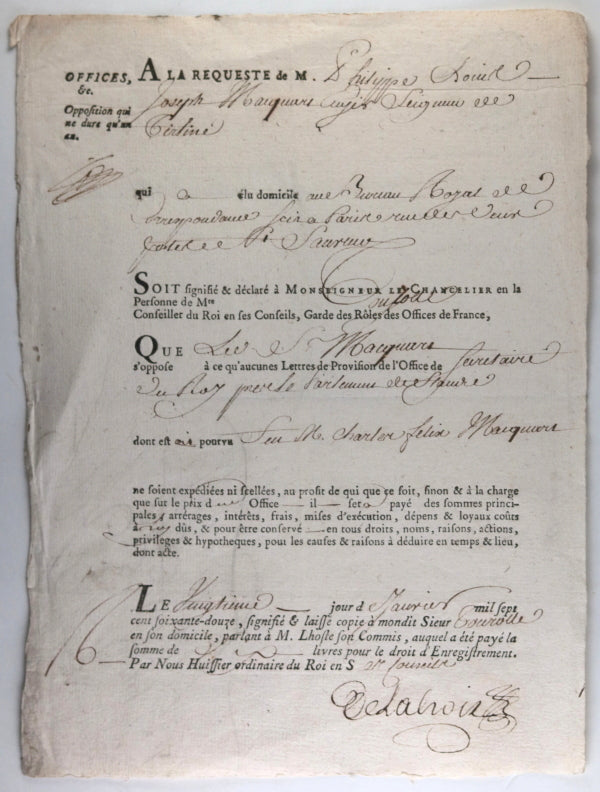 OFFICES,
&c.
Opposition qui
ne dure qu'un
an.
A LA REQUESTE de M. Philippe
Joseph Macquart Seigneur de
qui a élu domicile au Bureau Royal de
Correspondance à Paris rue des deux
portes St Sauveur
SOIT signifié & déclaré à MONSEIGNEUR LE CHANCELIER en la
Personne de Mre
Conseiller du Roi en ses Conseils, Garde des Rôles des Offices de France,
QUE Led S. Macquart
s'oppose à ce qu'aucunes Lettres de Provision de l'Office de Secretaire
du Roy pres le Parlement de
dont est pourvu Feu M. Charles felix Macquart
ne soient expédiées ni scellées, au profit de qui que ce soit, sinon & à la charge
que sur le prix d Office il sera payé des sommes princi-
pales, arrérages, intérêts, frais, mises d'exécution, dépens & loyaux coûts
à dûs, & pour être conservé en tous droits, noms, raisons, actions,
privileges & hypotheques, pour les causes & raisons à déduire en temps & lieu,
dont acte.
LE Vingtieme jour d Janvier mil sept
cent soixante-douze, signifié & laissé copie à mondit Sieur
en son domicile, parlant à M. Lhoste son Commis, auquel a été payé la
somme de livres pour le droit d'Enregistrement.
Par Nous Huissier ordinaire du Roi en S